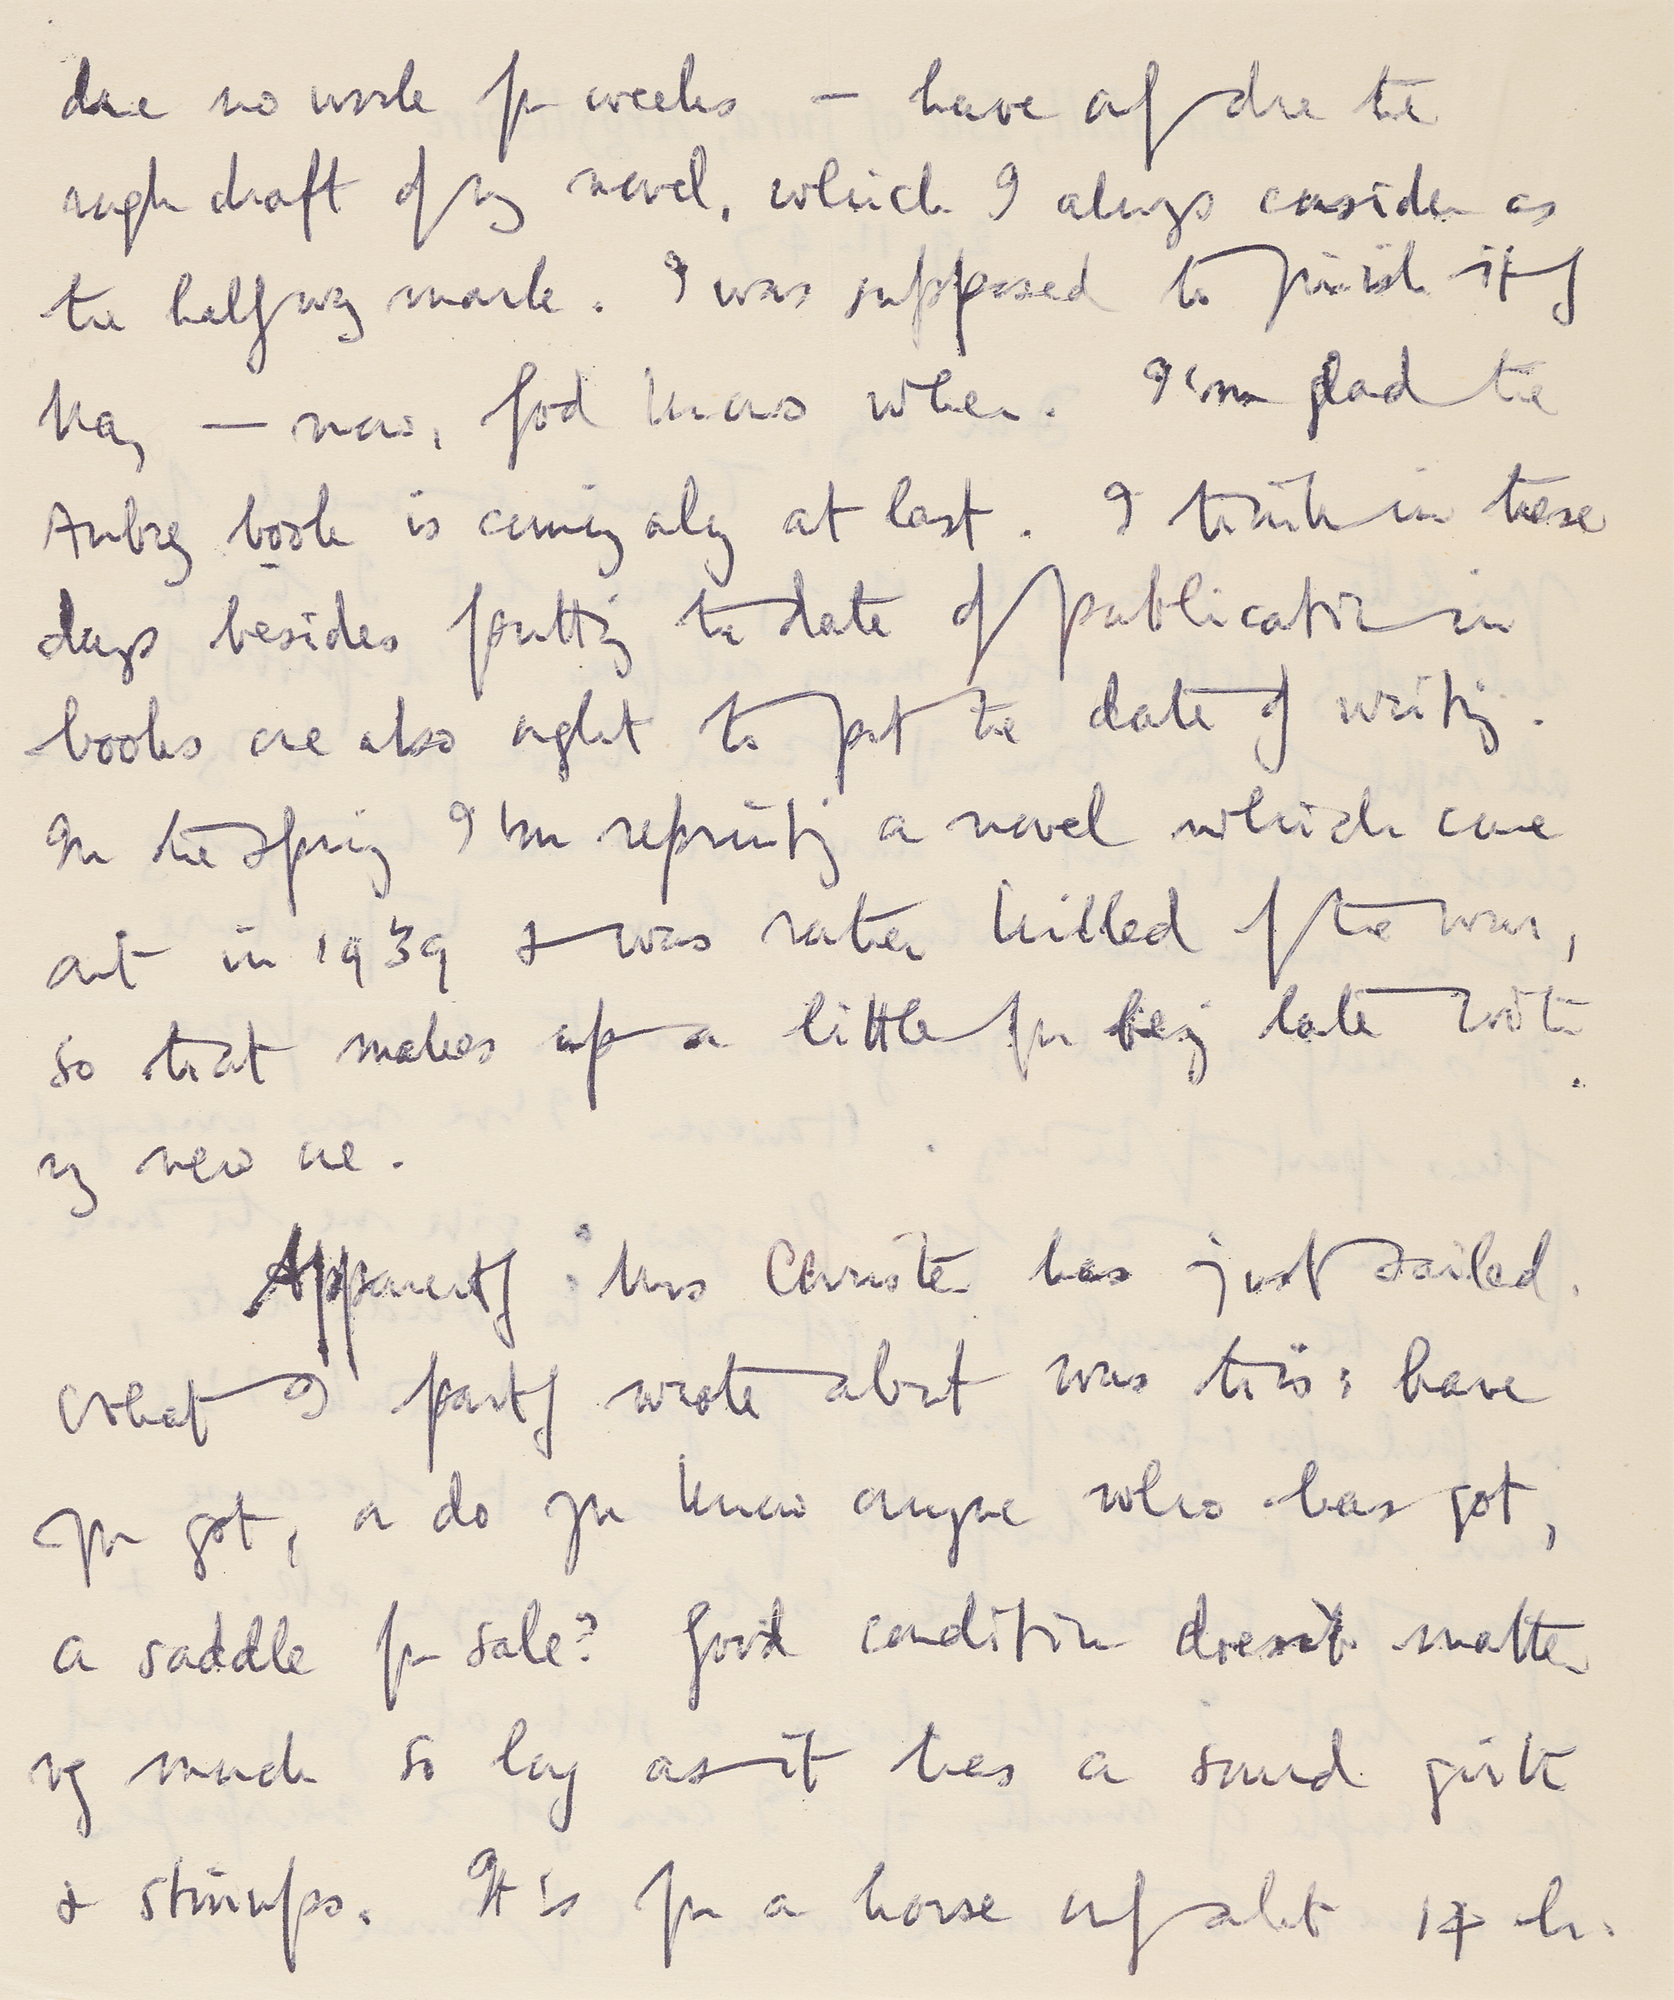 done no work for weeks — have only done the
rough draft of my novel, which I always consider as
the halfway mark. I was supposed to finish it by
May — now, God knows when. I'm glad the
Aubrey book is coming along at last. I think in these
days besides putting the date of publication in
books one also ought to put the date of writing.
In the spring I'm reprinting a novel which came
out in 1939 & was rather killed by the war,
so that makes up a little for being late with
my new one.
Apparently Mrs Christen has just sailed.
What I partly wrote about was this: have
you got, or do you know anyone who has got,
a saddle for sale? Good condition doesn't matter
very much so long as it has a sound girth
& stirrups. It is for a horse only about 14 h.